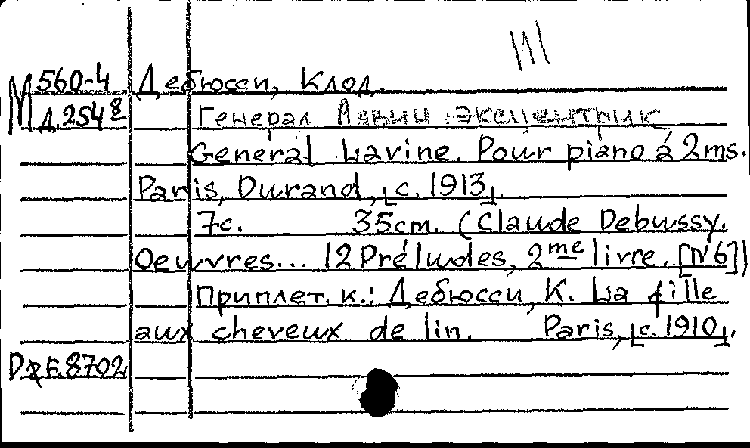 III
М 560-4 Дебюсси, Клод.
Д.254 8 Генерал Лявин - эксцентрик
General Lavine. Pour piano á 2ms.
Paris, Durand, [c. 1913].
7с. 35cm. (Claude Debussy.
Oeuvres... 12 Préludes, 2me livre. [N6])
Приплет. к.: Дебюсси, К. La fille
aux cheveux de lin. Paris, [c. 1910].
8702